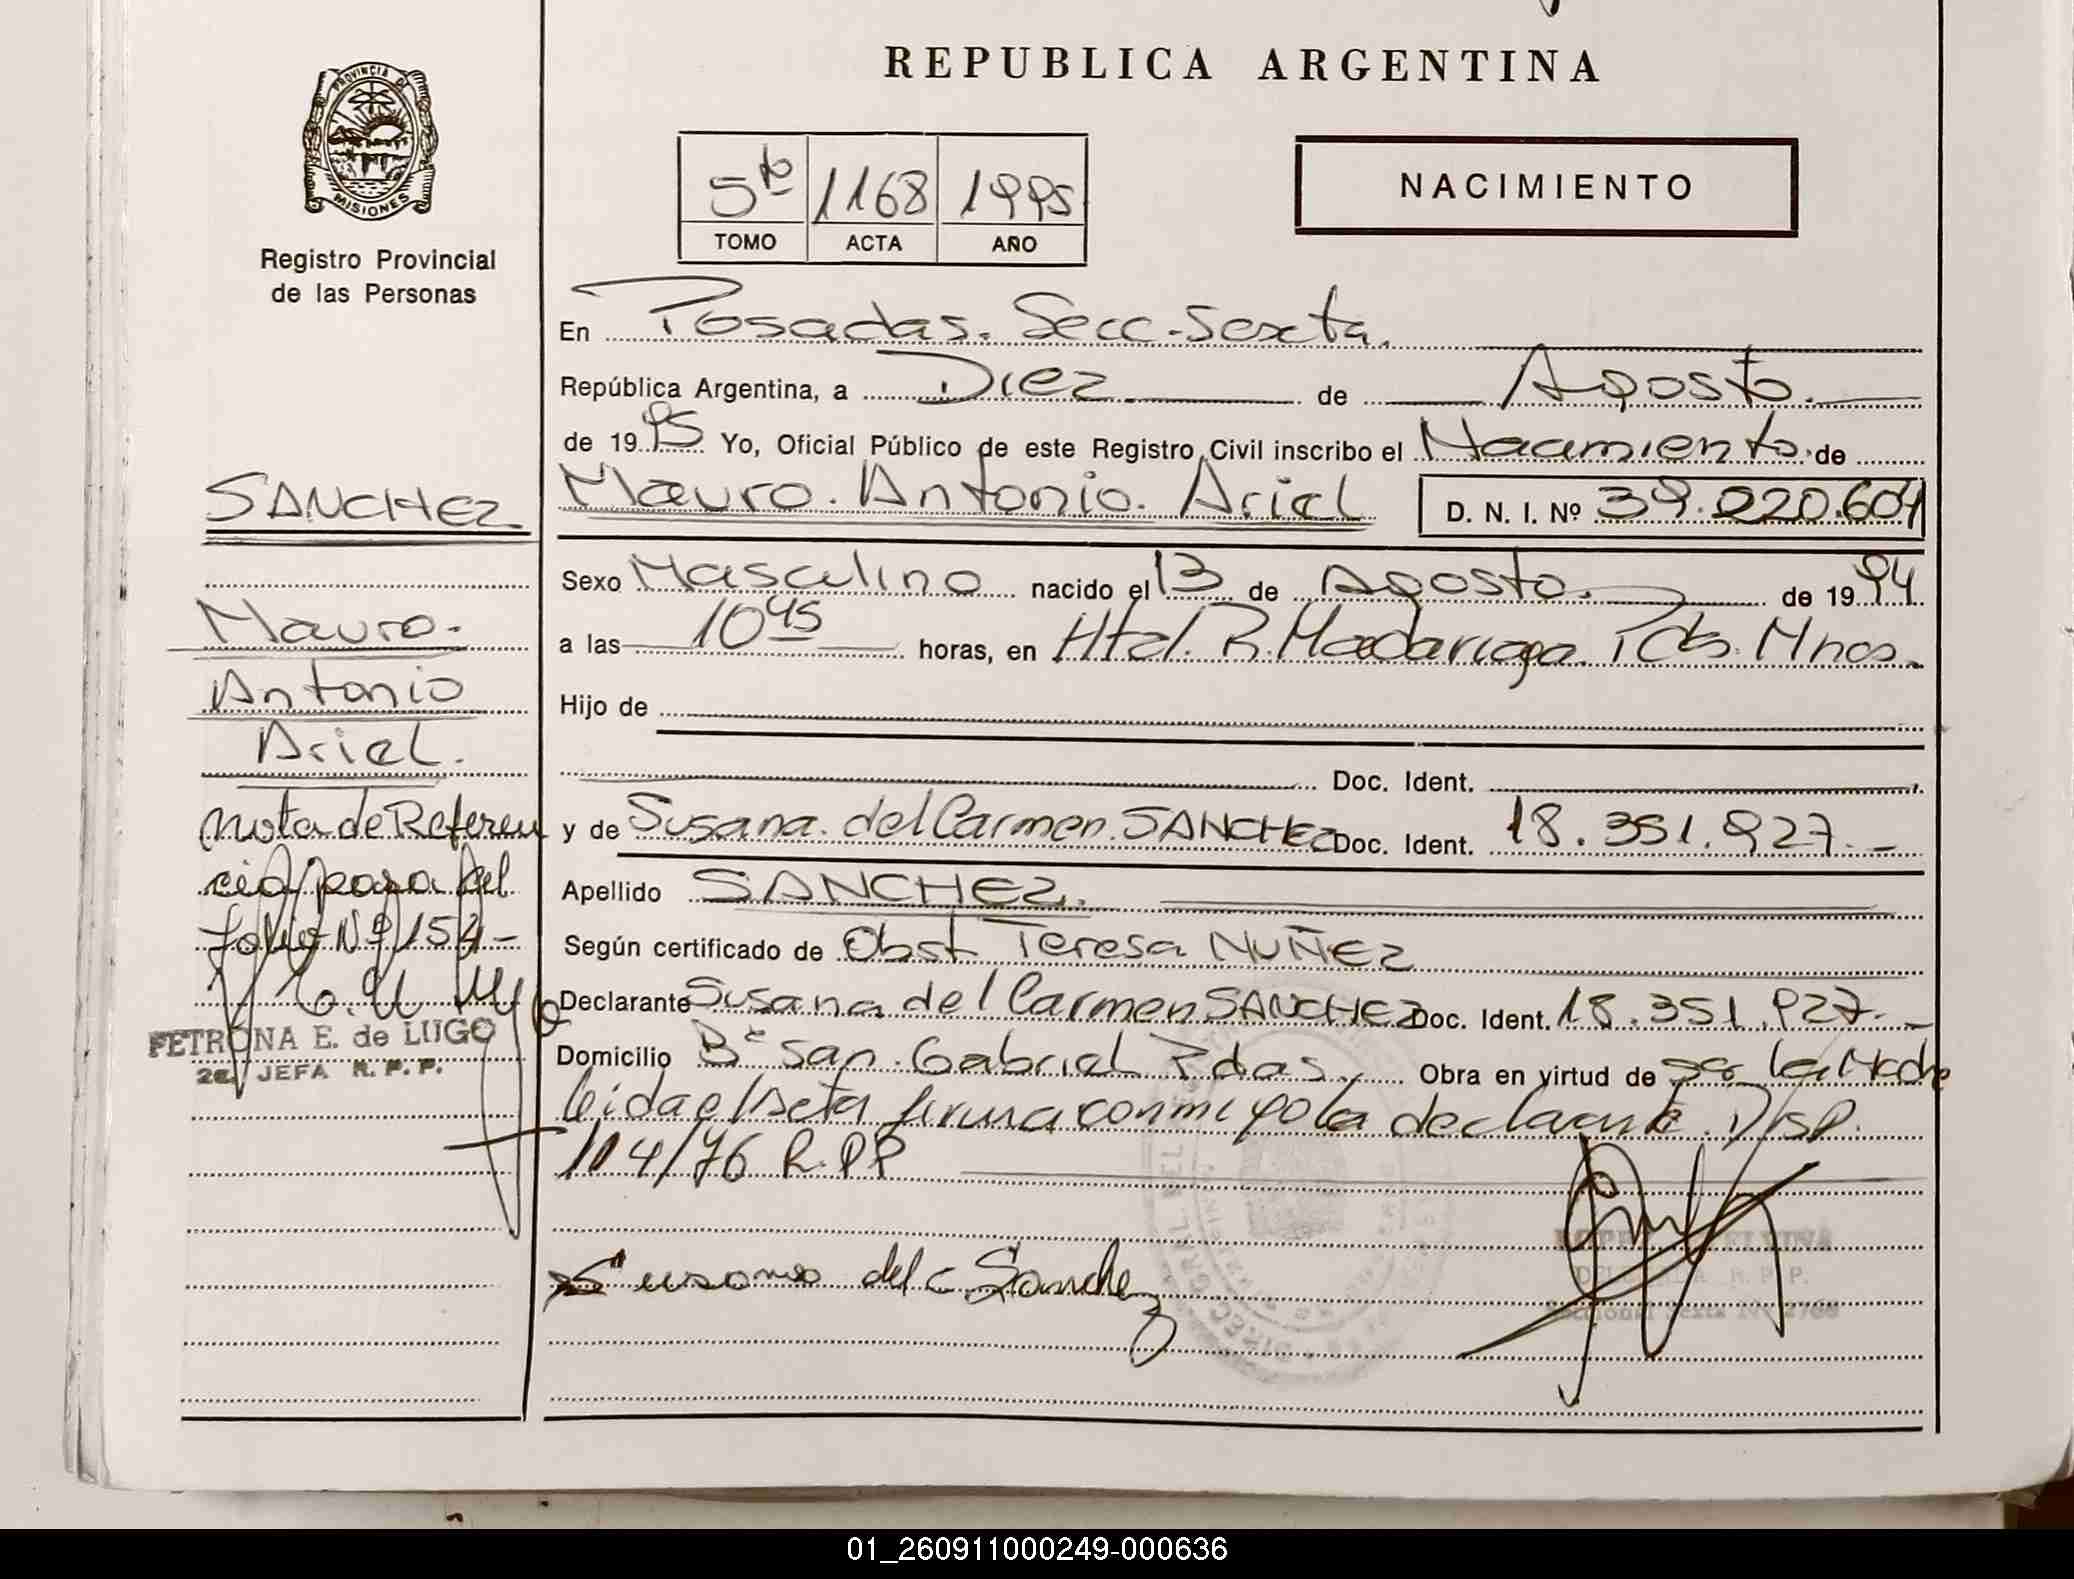 REPUBLICA ARGENTINA
PROVINCIA DE
MISIONES
Registro Provincial
de las Personas
5to 1168 1995
TOMO ACTA AÑO
NACIMIENTO
En Posadas. Secc. Sexta.
República Argentina, a Diez de Agosto.
de 1995 Yo, Oficial Público de este Registro Civil inscribo el Nacimiento de
Mauro. Antonio. Ariel D. N. I. Nº 39.020.604
Sexo Masculino nacido el 13 de Agosto. de 1994
a las 10 45 horas, en Htal. R. Madariaga. Pdas. Mnes.
Hijo de
Doc. Ident.
y de Susana. del Carmen. SANCHEZ Doc. Ident. 18.351.927.-
Apellido SANCHEZ.
Según certificado de Obst Teresa NUÑEZ
Declarante Susana del Carmen SANCHEZ Doc. Ident. 18.351.927.-
Domicilio Bº San. Gabriel Pdas. Obra en virtud de ser la Madre
leida el Acta firma conmigo la declarante. Disp.
104/76 R.PP
Susana del C Sanchez
R. P. P.
SANCHEZ
Mauro.
Antonio
Ariel.
Nota de Referen
cia pasa del
folio Nº 154-
PETRONA E. de LUGO
2a. JEFA R. P. P.
01_260911000249-000636